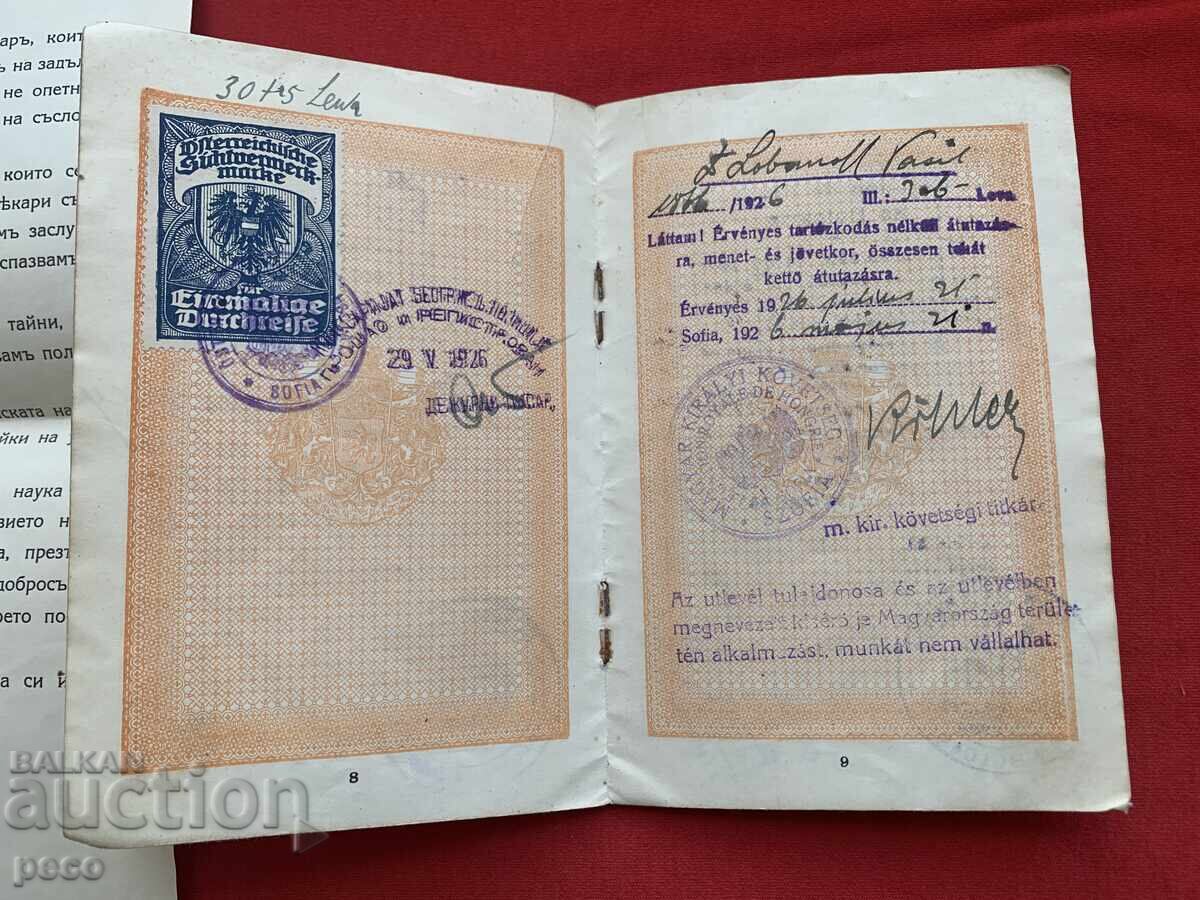 аръ, кои
ъ на задъл
не опетн
на съсло
които со
ѣкари съ
мъ заслу
спазвамъ
тайни,
вамъ пол
ската на
йки на у
наука
вието н
а, презъ
добросъ
рето по
а си и
30 + 5 Lewa
Österreichische
Sichtvermerk-
marke
für
Einmalige
Durchreise
SOFIA
29 V 1926
ДЕЖУРЕНЪ ПИСАР
8
Dr Lobanoff Vasil
/1926 III.: 306- Leva
Láttam! Érvényes tartózkodás nélküli átutazás-
ra, menet- és jövetkor, összesen tehát
kettő átutazásra.
Érvényes 1926 julius 21
Sofia, 1926 május 21 n.
MAGYAR KIRÁLYI KÖVETSÉG
DE HONGRIE
SZÓFIA
m. kir. követségi titkár
Az utlevél tulajdonosa és az utlevélben
megnevezett kisérője Magyarország terüle-
tén alkalmazást, munkát nem vállalhat.
9
BALKAN
auction
peco